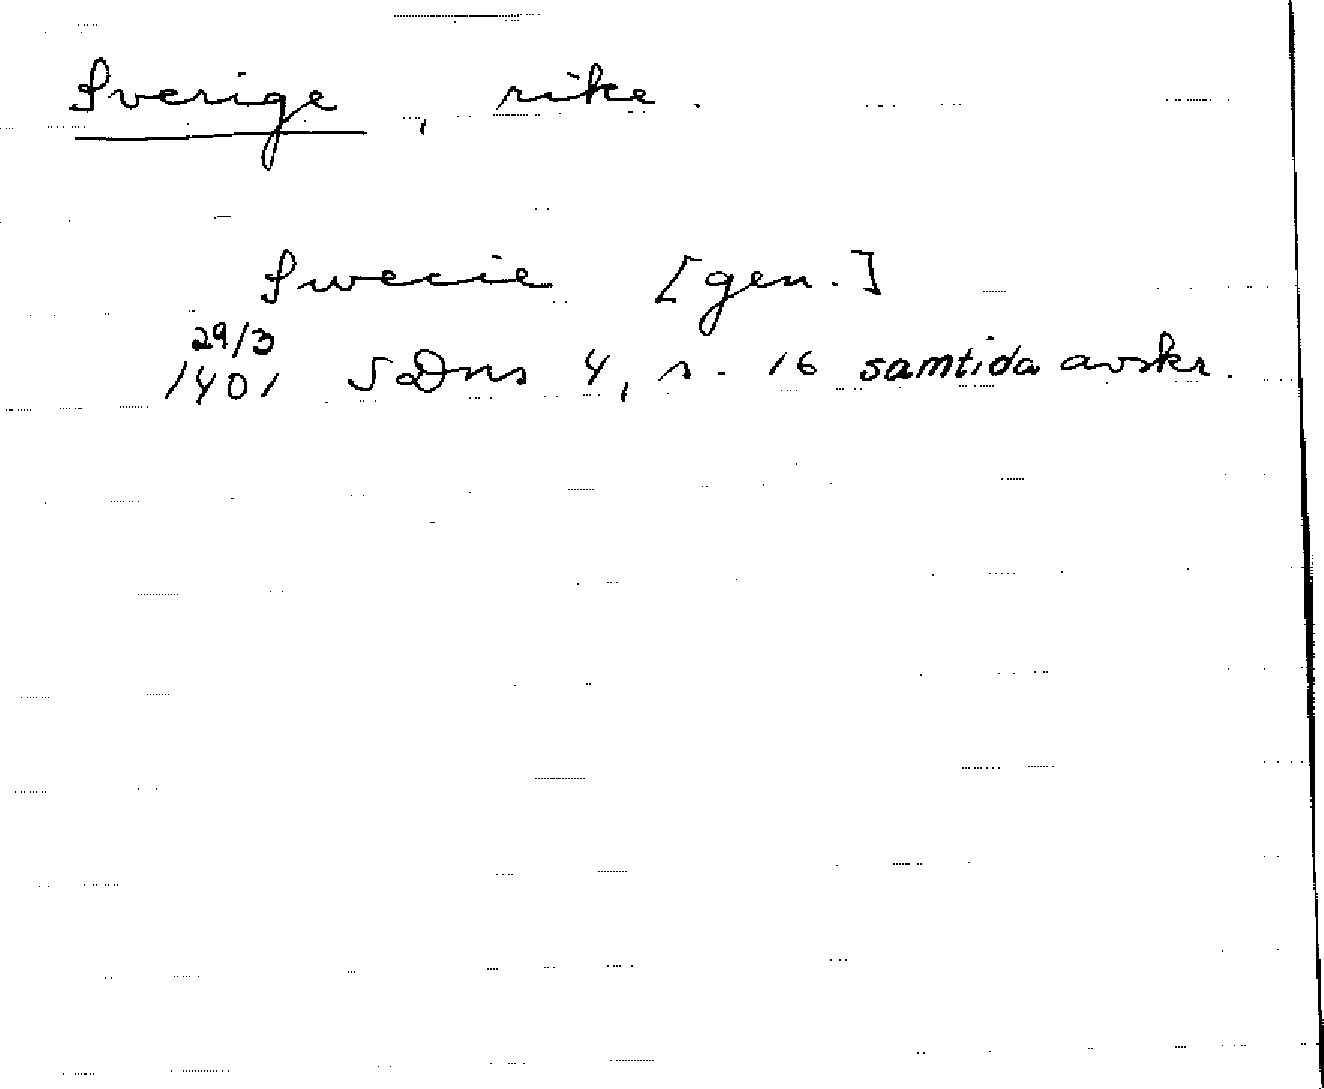 Sverige, rike.
Swecie [gen.]
29/3
1401 SDns 4, s. 16 samtida avskr.